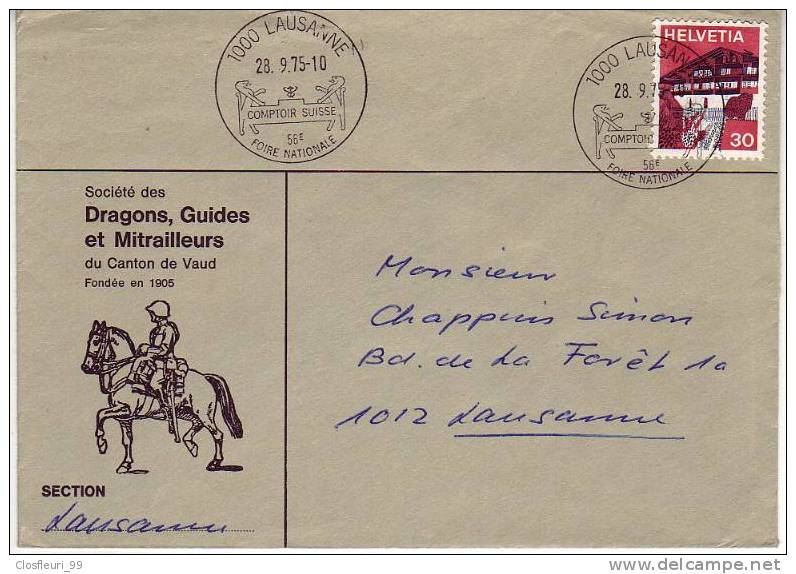 1000 LAUSANNE
28. 9.75-10
COMPTOIR SUISSE
56E
FOIRE NATIONALE
1000 LAUSAN
28. 9.75
COMPTOIR
56E
FOIRE NATIONALE
HELVETIA
30
Société des
Dragons, Guides
et Mitrailleurs
du Canton de Vaud
Fondée en 1905
SECTION
Lausanne
Monsieur
Chappuis Simon
Bd. de La Forêt 1a
1012 Lausanne
Closfleuri_99
delcampe.net